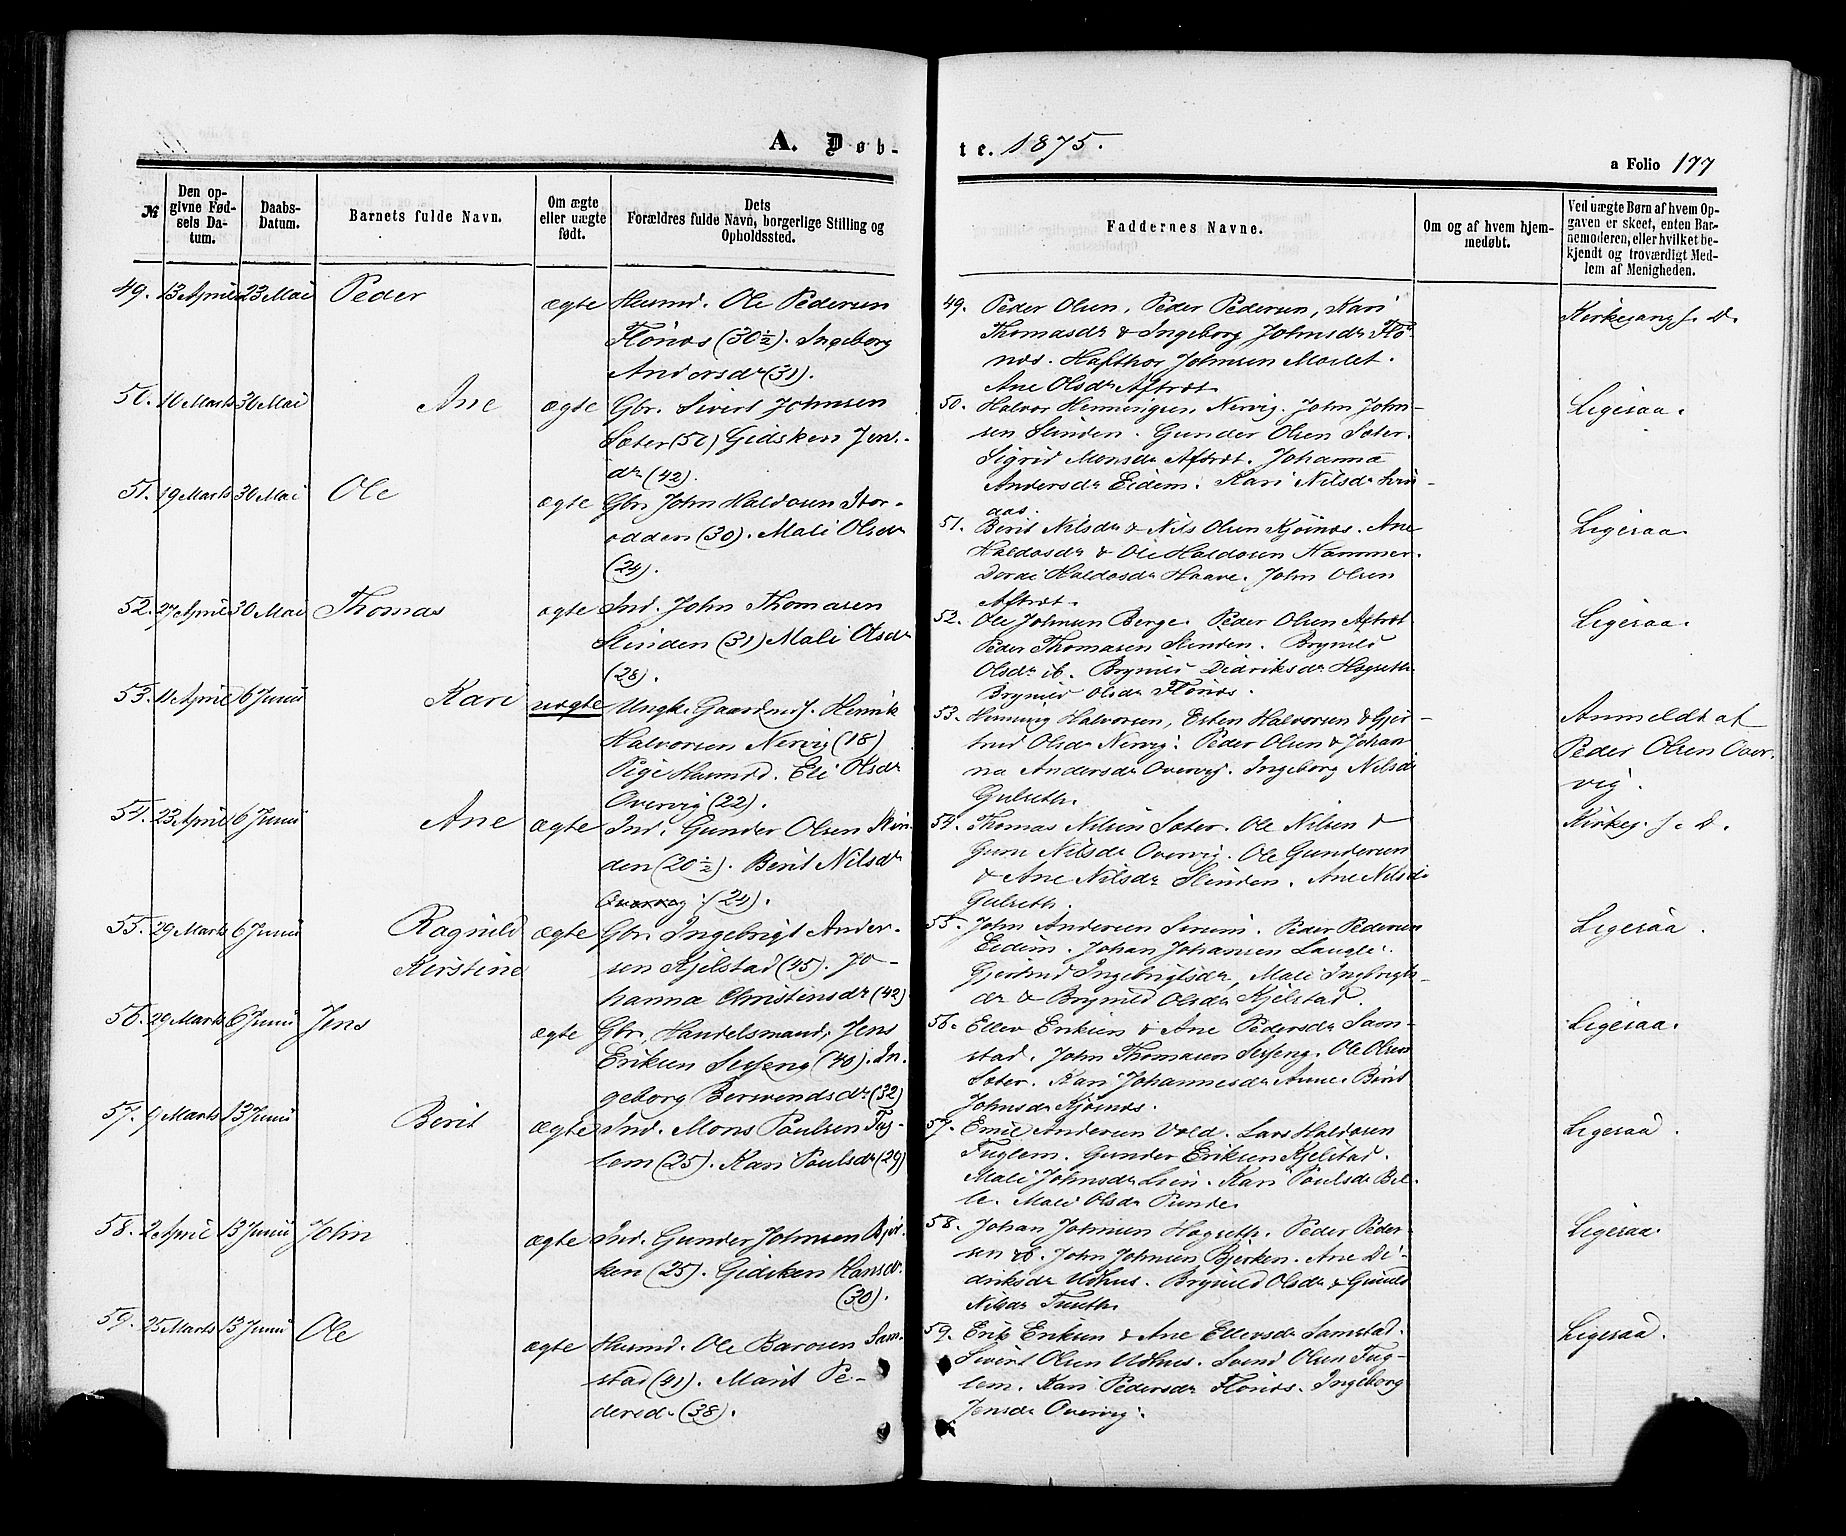 A. Døb-
te. 1875.
a Folio 177
№
Den op-
givne Fød-
sels Da-
tum.
Daabs-
Datum.
Barnets fulde Navn.
Om ægte
eller uægte
født.
Dets
Forældres fulde Navn, borgerlige Stilling og
Opholdssted.
Faddernes Navne.
Om og af hvem hjem-
medøbt.
Ved uægte Børn af hvem Op-
gaven er skeet, enten Bar-
nemoderen, eller hvilket be-
kjendt og troværdigt Med-
lem af Menigheden.
49. 13 April 23 Mai Peder ægte Husmd. Ole Pedersen
Flönæs (30½). Ingeborg
Andersdr (31).
49. Peder Olsen, Peder Pedersen, Kari
Thomasdr & Ingeborg Johnsdr Flö-
næs. Hafthor Johnsen Moslet.
Ane Olsdr Aftret.
Kirkegang s. D.
50. 16 Marts 30 Mai Ane ægte Gbr. Sivert Johnsen
Sæter (50) Gidsken Jens-
dr (42).
50. Halvor Henningsen Nervig. John John-
sen Slinden. Gunder Olsen Sæter.
Sigrid Monsdr Aftret. Johanna
Andersdr Eidem. Kari Nilsdr
aas.
Ligesaa.
51. 19 Marts 30 Mai Ole ægte Gbr. John Haldosen Stor-
odden (30). Mali Olsdr
(24).
51. Berit Nilsdr & Nils Olsen Kjösnæs. Ane
Haldosdr & Ole Haldosen Hammer.
Dordi Haldosdr Haave. John Olsen
Aftret.
Ligesaa.
52. 27 April 30 Mai Thomas ægte Ind. John Thomasen
Slinden (31) Mali Olsdr
(28).
52. Ole Johnsen Berge. Peder Olsen Aftret
Peder Thomasen Slinden. Brynild
Olsdr ib. Brynild Didriksdr Hogseth
Brynild Olsdr Flönæs.
Ligesaa.
53. 11 April 6 Junii Kari uægte Ungk. Gaardms. Henrik
Halvorsen Nervig (18)
Pige Husmd. Eli Olsdr
Overvig (22).
53. Henning Halvorsen, Esten Halvorsen & Gjer-
trud Olsdr Nervig. Peder Olsen & Johan-
na Andersdr Overvig. Ingeborg Nilsdr
Gulseth.
Anmeldt af
Peder Olsen Over-
vig.
54. 23 April 6 Junii Ane ægte Ind. Gunder Olsen Slin-
den (20½). Berit Nilsdr
Overvig (24).
54. Thomas Nilsen Sæter. Ole Nilsen &
Guru Nilsdr Overvig. Ole Gundersen
& Ane Nilsdr Slinden. Ane Nilsdr
Gulseth.
Kirkeg. s. D.
55. 29 Marts 6 Junii Ragnild
Kirstine ægte Gbr. Ingebrigt Ander-
sen Kjelstad (45). Jo-
hanna Christensdr (42)
55. John Andersen Sesseim. Peder Pedersen
Eidem. Johan Johansen Laugle.
Gjertrud Ingebrigtsdr, Mali Ingebrigts-
dr & Brynild Olsdr Kjelstad.
Ligesaa.
56. 29 Marts 6 Junii Jens ægte Gbr. Handelsmand, Jens
Eriksen Selseng (40). In-
geborg Berwendsdr (32)
56. Ellev Eriksen & Ane Pedersdr Sam-
stad. John Thomasen Selseng. Ole Olsen
Sæter. Kari Johannesdr Aune. Berit
Johnsdr Kjösnæs.
Ligesaa.
57. 9 Marts 13 Junii Berit ægte Ind. Mons Poulsen Fug-
lem (25). Kari Poulsdr (29)
57. Emil Andersen Vold. Lars Haldosen
Fuglem. Gunder Eriksen Kjelstad.
Mali Johnsdr Lien. Kari Poulsdr Bel-
le. Mali Olsdr Punde.
Ligesaa.
58. 2 April 13 Junii John ægte Ind. Gunder Johnsen Bjer-
ken (25). Gidsken Hansdr
(30).
58. Johan Johnsen Hogseth. Peder Peder-
sen ib. John Johnsen Bjerken. Ane Di-
driksdr Udhus. Brynild Olsdr & Gunild
Nilsdr Tuseth.
Ligesaa.
59. 25 Marts 13 Junii Ole ægte Husmd. Ole Barosen Sam-
stad (41). Marit Pe-
dersd. (38).
59. Erik Eriksen & Ane Ellevsdr Samstad.
Sivert Olsen Udhus. Svend Olsen Fug-
lem. Kari Pedersdr Flönæs. Ingeborg
Jensdr Overvig.
Ligesaa.